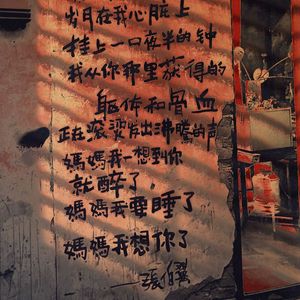 岁月在我心脏上
挂上一口夜半的钟
我从你那里获得的
躯体和骨血
正在滚烫发出沸騰的声
媽媽我一想到你
就醉了，
媽媽我要睡了
媽媽我想你了
——張